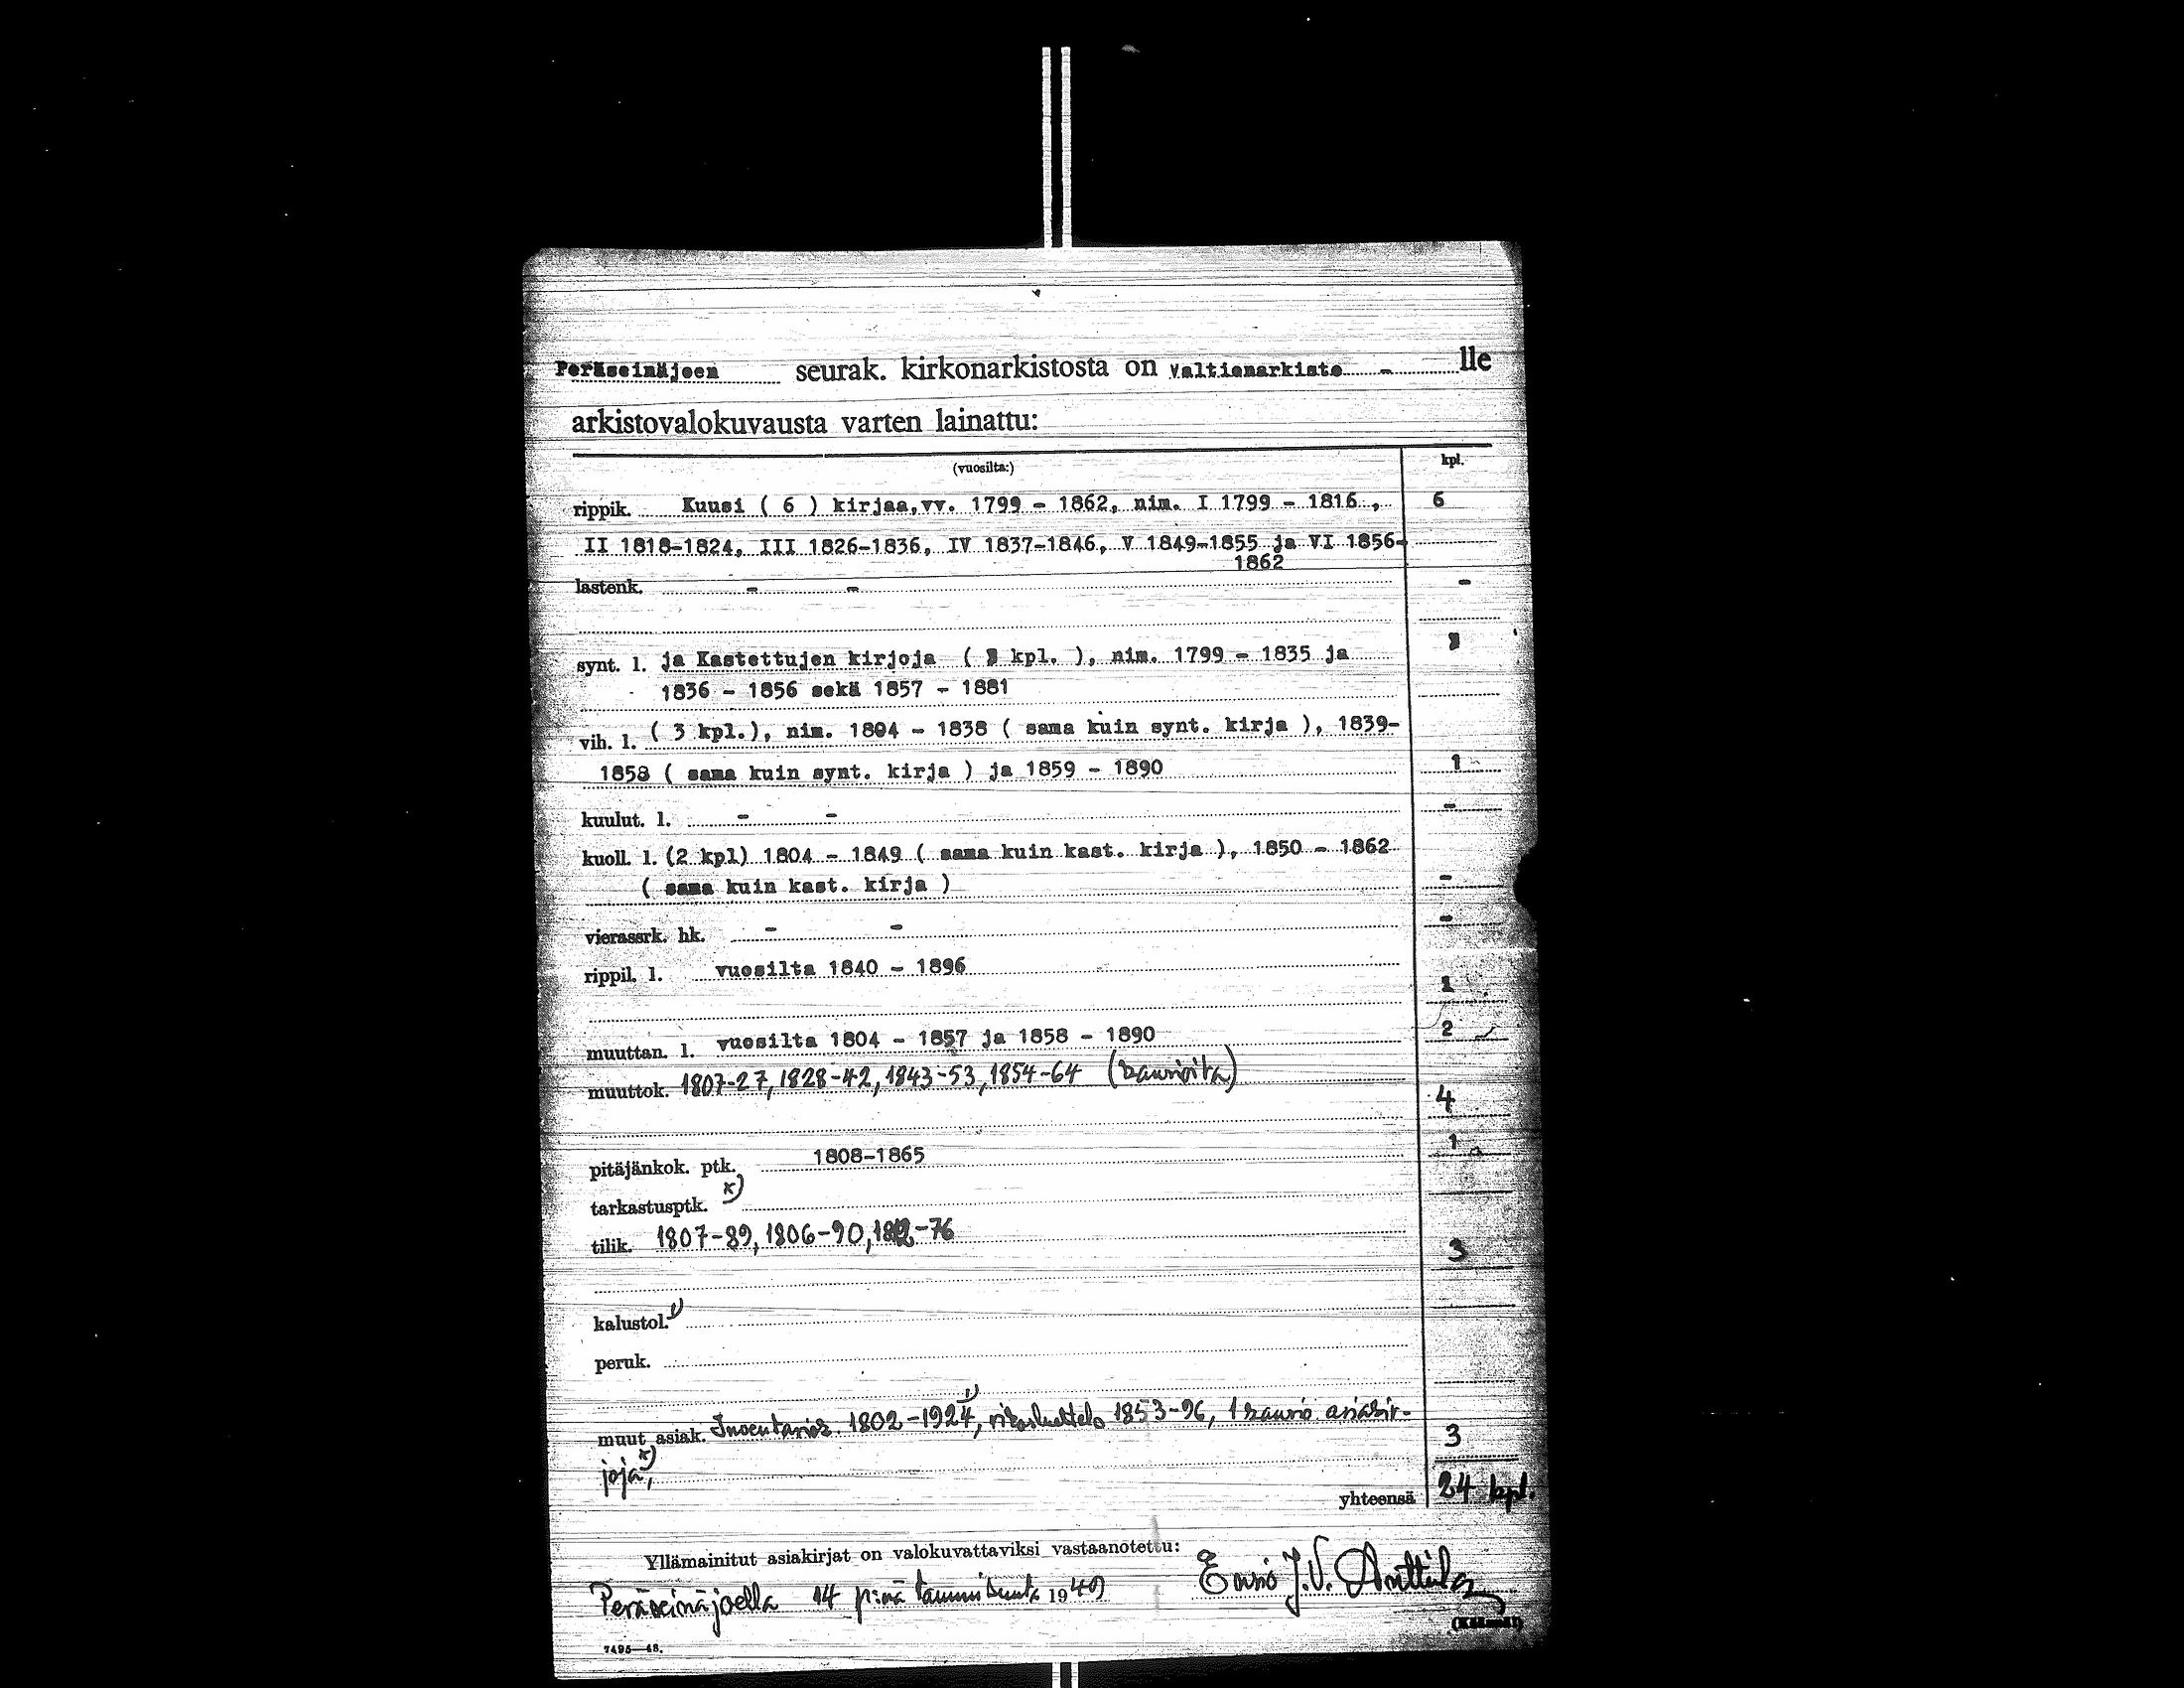 Peräseinäjoen seurak. kirkonarkistosta on Valtionarkisto - lle
arkistovalokuvausta varten lainattu:
(vuosilta:) kpl.
rippik. Kuusi ( 6 ) kirjaa, vv. 1799 - 1862, nim. I 1799 - 1816 , 6
II 1818-1824, III 1826-1836, IV 1837-1846, V 1849-1855 ja VI 1856-
1862
lastenk. - - -
synt. l. ja Kastettujen kirjoja ( kpl. ), nim. 1799 - 1835 ja
1836 - 1856 sekä 1857 - 1881
vih. l. ( 3 kpl.), nim. 1804 - 1838 ( sama kuin synt. kirja ), 1839-
1858 ( sama kuin synt. kirja ) ja 1859 - 1890 1
kuulut. l. - - -
kuoll. l. (2 kpl) 1804 - 1849 ( sama kuin kast. kirja ), 1850 - 1862
( sama kuin kast. kirja ) -
vierassrk. hk. - - -
rippil. l. vuosilta 1840 - 1896 1
muuttan. l. vuosilta 1804 - 1857 ja 1858 - 1890 2
muuttok. 1807-27, 1828-42, 1843-53, 1854-64 4
pitäjänkok. ptk. 1808-1865 1
tarkastusptk. x)
tilik. 1807-89, 1806-90, -76 3
kalustol. 1)
peruk.
muut asiak. 1802-1924 1), rikosluettelo 1853-96, 1 asiakir-
joja x), 3
yhteensä 24 kpl.
Yllämainitut asiakirjat on valokuvattaviksi vastaanotettu:
Peräseinäjoella 14 p:nä tammikuuta 1949 J.V. Anttila
7495—48.